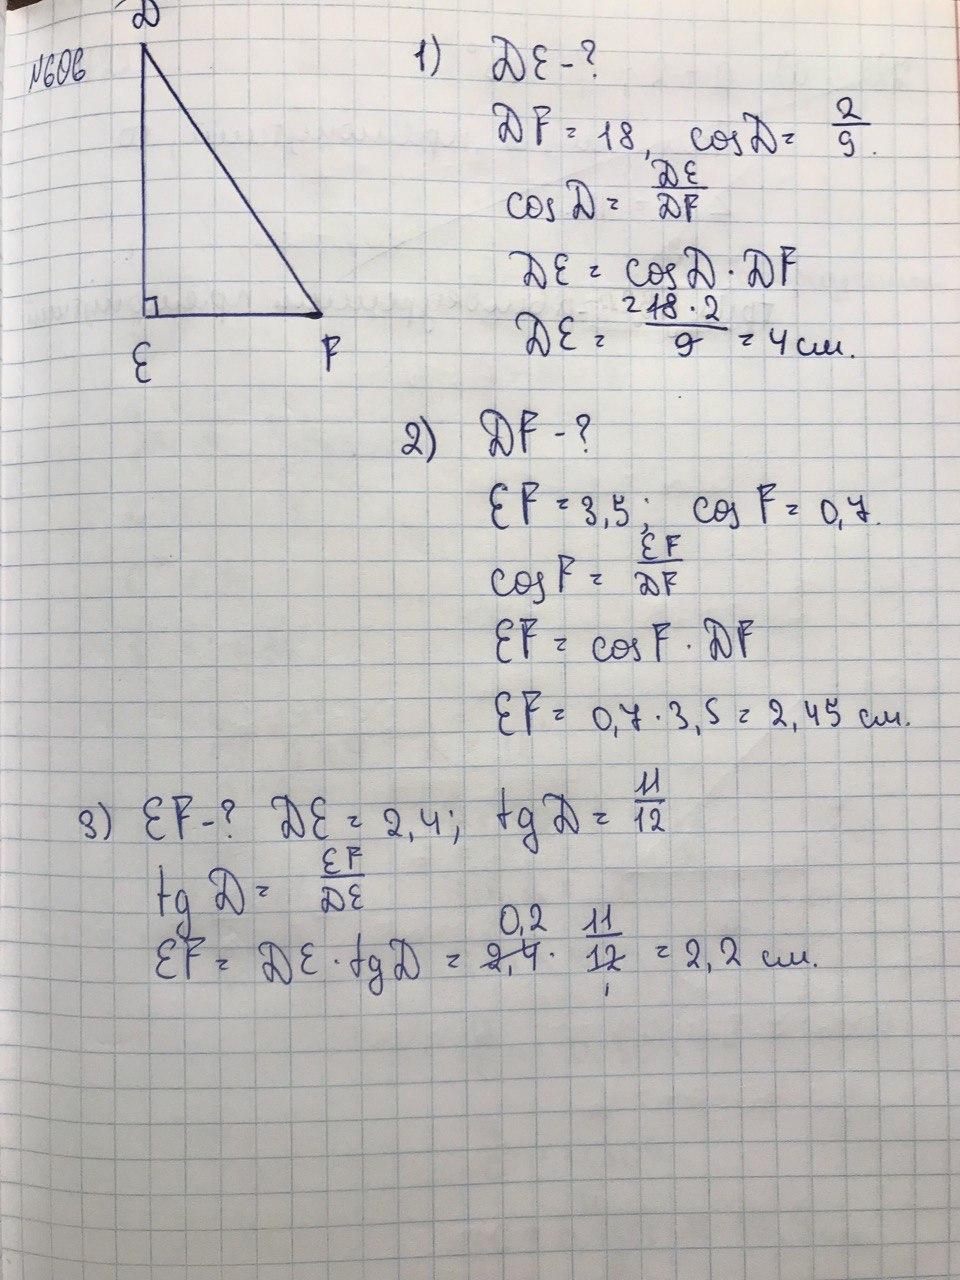 D
N606
E
F
1) DE - ?
DF = 18, cos D = 2/9.
cos D = DE/DF
DE = cos D · DF
DE = = 18 · 2 / 9 = 4 см.
2) DF - ?
EF = 3,5; cos F = 0,7.
cos F = EF/DF
EF = cos F · DF
EF = 0,7 · 3,5 = 2,45 см.
3) EF - ? DE = 2,4; tg D = 11/12
tg D = EF/DE
0,2
EF = DE · tg D = 2,4 · 11/12 = 2,2 см.
1